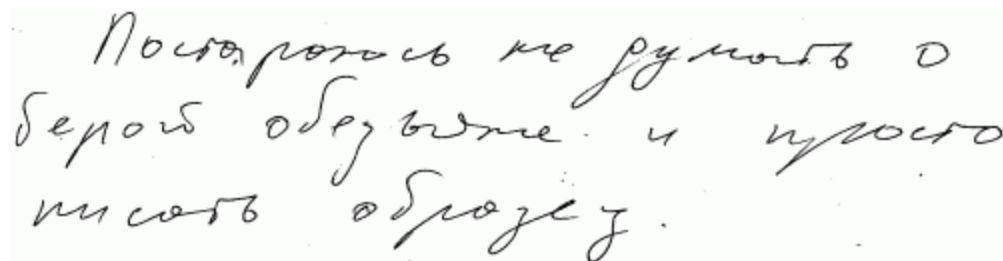 Постараюсь не думать о
белой обезьяне и просто
писать образец.